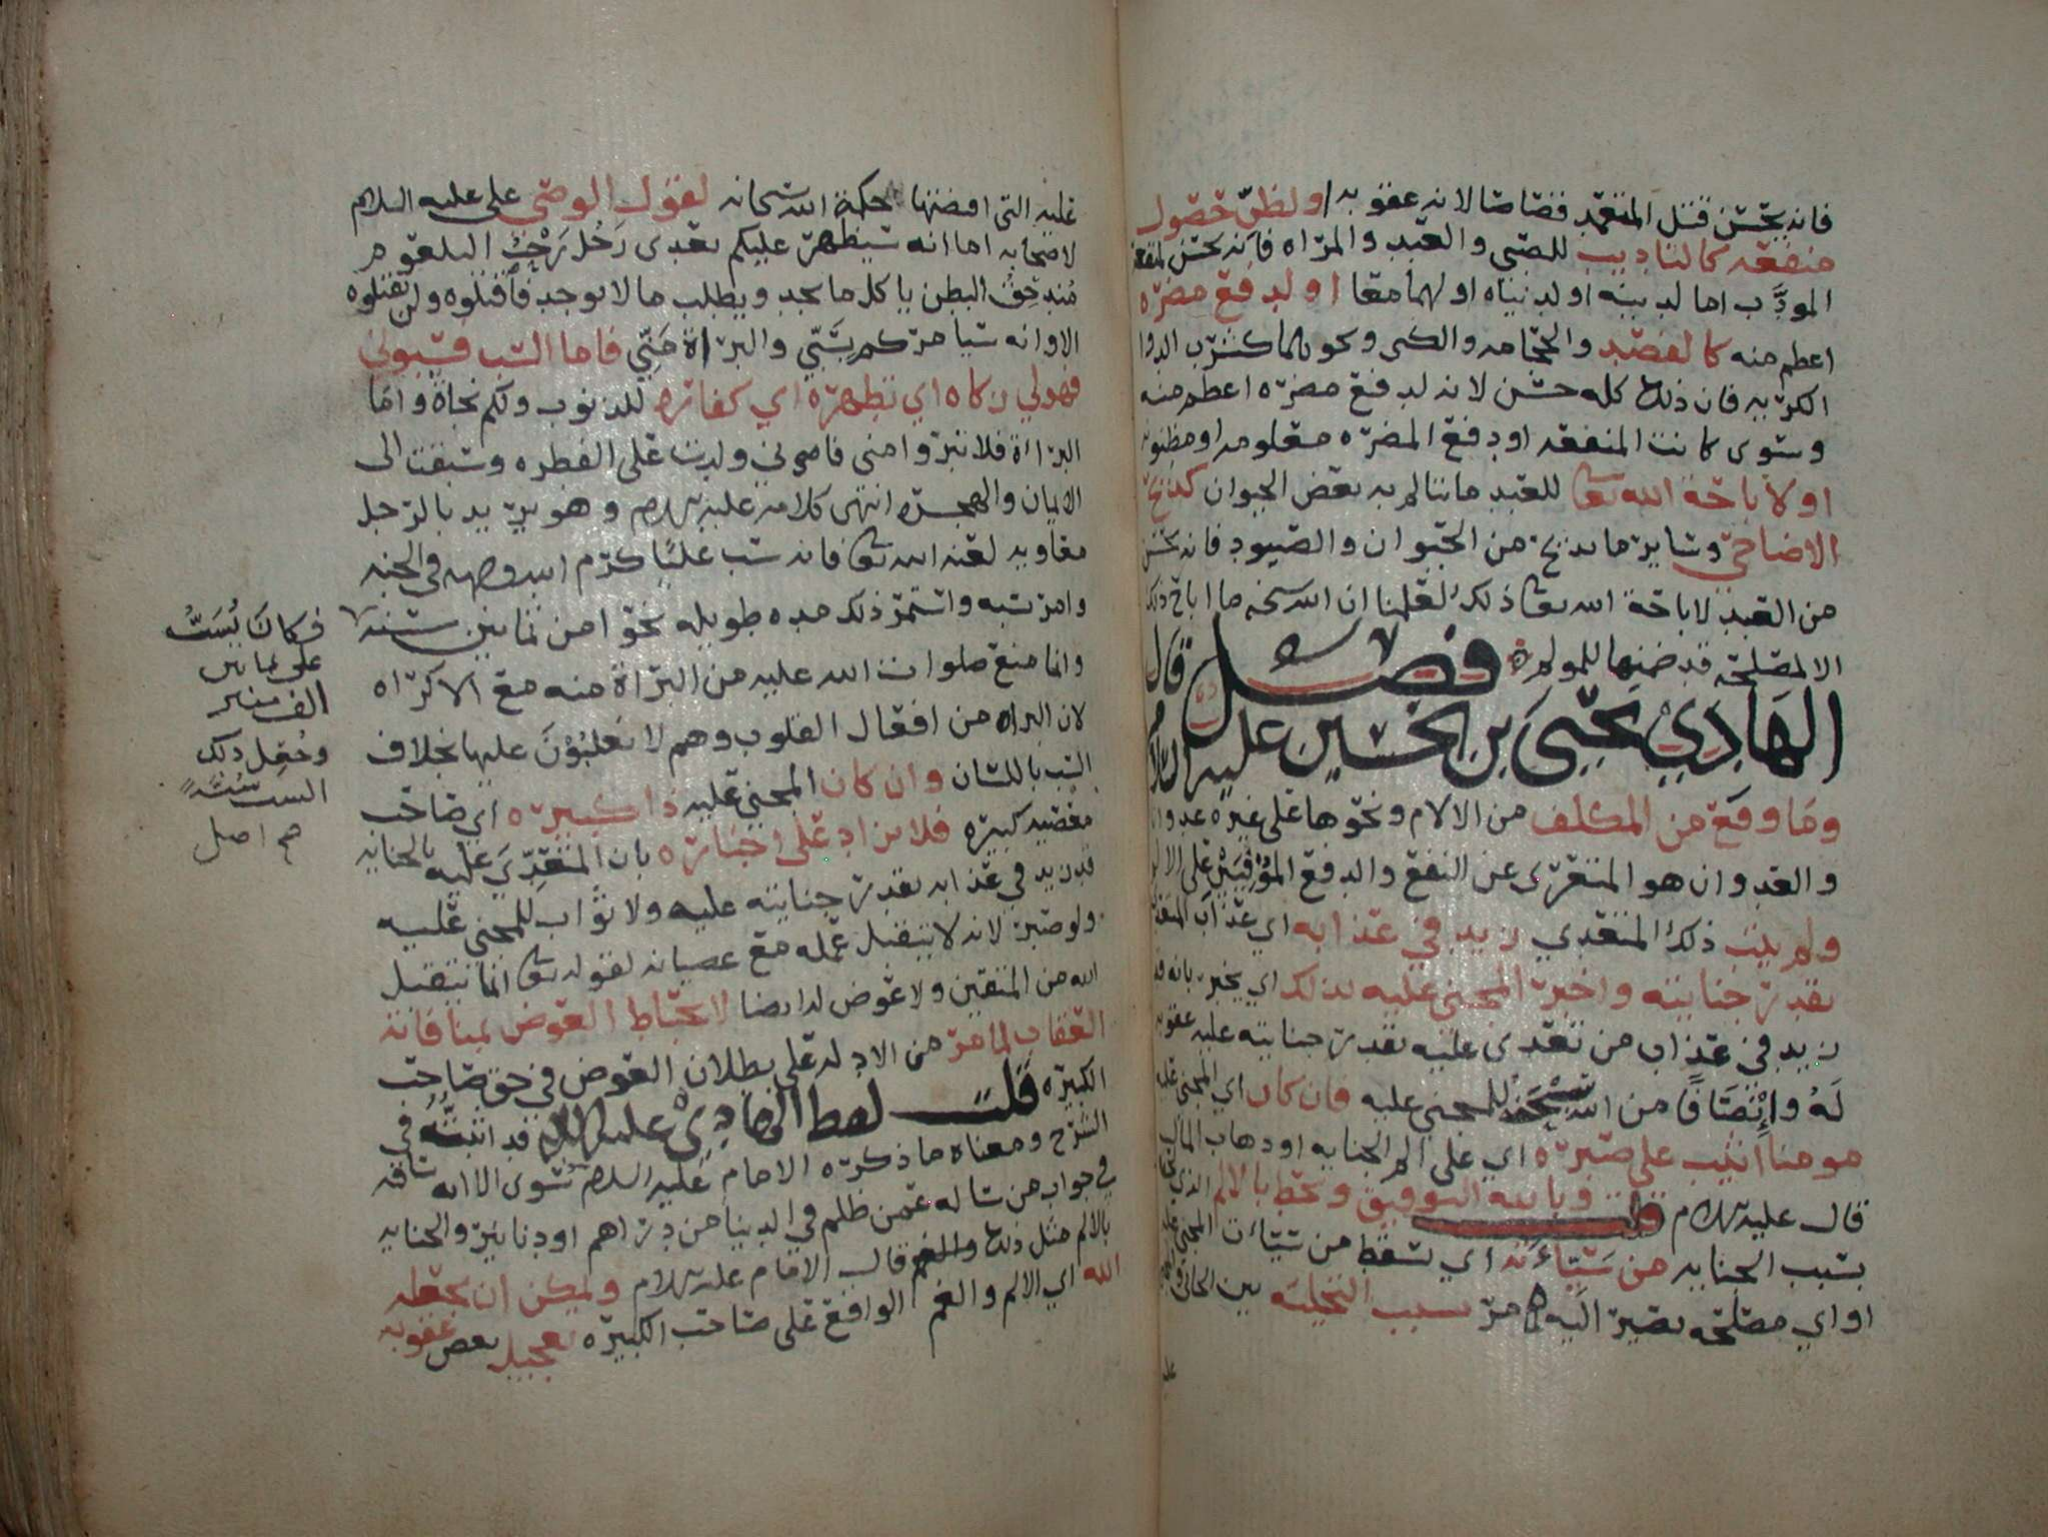 فانه يحسن قتل المتعمد قصاصا لانه عقوبه او لظن حصول
منفعه كالتاديب للصبي والعبد والمراه فانه يحسن لمنفعه
المودَّب اما لدينه او لدنياه او لهما معا او لدفع مضره
اعظم منه كالفصد والحجامه والكي ونحوهما كشرب الدوا
الكريه فان ذلك كله حسن لانه لدفع مضره اعظم منه
وسوى كانت المنفعه او دفع المضره معلومه او مظنونه
او لاباحة الله تعالى للعبد ما يتالم به بعض الحيوان كذبح
الاضاحي وساير ما يذبح من الحيوان والصيود فانه يحسن
من العبد لاباحة الله تعالى ذلك لعلمنا ان الله سبحنه ما اباح ذلك
الا لمصلحه قد ضمنها للمولم فصل قال
الهادي يحيى بن الحسين عليه السلام
وما وقع من المكلف من الالام ونحوها على غيره عدوانا
والعدوان هو المتعري عن النفع والدفع الموفيين على الالم
ولم يتب ذلك المتعدي زيد في عذابه اي عذاب المتعدي
بقدر جنايته واخبر المجني عليه بذلك اي يخبر بانه قد
زيد في عذاب من تعدى عليه بقدر جنايته عليه عقوبه
لَهُ وإنتصافًا من الله سبحنه للمجني عليه فان كان اي المجني عليه
مومنا اثيب على صبره اي على الم الجنايه او ذهاب المال
قال عليه السلام قلت وبالله التوفيق ويحط بالالم الذي
بسبب الجنايه من سيئاته اي يسقط من سيئات المجني عليه
او اي مصلحه يصير اليه مر بسبب التخليه بين الجاني
عليه التي اقتضتها حكمة الله سبحانه لقول الوصي علي عليه السلام
لاصحابه اما انه سيظهر عليكم بعدى رَجُل رَحْبُ البلعوم
مُندحِق البطن ياكل ما يجد ويطلب ما لا يوجد فاقتلوه ولن تقتلوه
الا وانه سيامركم بسَبّي والبراة مني فاما السب فسبوني
فهو لي زكاه اي تطهره اي كفاره للذنوب ولكم نجاة واما
البراة فلا تبروا مني فاني ولدت على الفطره وسبقت الى
الايمان والهجره انتهى كلامه عليه السلام وهو يريد بالرجل
معاويه لعنه الله تعالى فانه سب عليًّا كرم الله وجهه في الجنه
وامر بسبه واستمر ذلك مده طويله نحوا من ثمانين سنه
وانما منع صلوات الله عليه من البراة منه مع الاكراه
لان البراه من افعال القلوب وهم لا يغلبُوْنَ عليها بخلاف
السب باللسان وان كان المجني عليه ذا كبيره اي صاحب
معصيه كبيره فلا يزاد على اخباره بان المتعدِّيَ عليه بالجنايه
قد زيد في عذابه بقدر جنايته عليه ولا ثواب للمجني عليه
ولو صبر لانه لا يتقبل عمله مع عصيانه لقوله تعالى انما يتقبل
الله من المتقين ولا عوض له ايضا لانحباط العوض بمنافاته
العقاب لما مر من الادله على بطلان العوض في حق صاحب
الكبيره قلت لفظ الهادي عليه السلام قد اثبته في
الشرح ومعناه ما ذكره الامام عليه السلام سوى الا انه ساقه
في جواب من ساله عمن ظلم في الدنيا من دراهم او دنانير والجنايه
بالالم مثل ذلك والغم قال الامام عليه السلام ويمكن ان يجعله
الله اي الالم والغم الواقع على صاحب الكبيره تعجيل بعض عقوبه
فكانَ يُسَبُّ
على ثمانين
الف منبر
وجُعِل ذلك
السب سُنَّةً
صح اصل